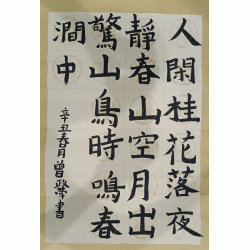 人閑桂花落夜
靜春山空月出
驚山鳥時鳴春
澗中
辛丑春月曾書